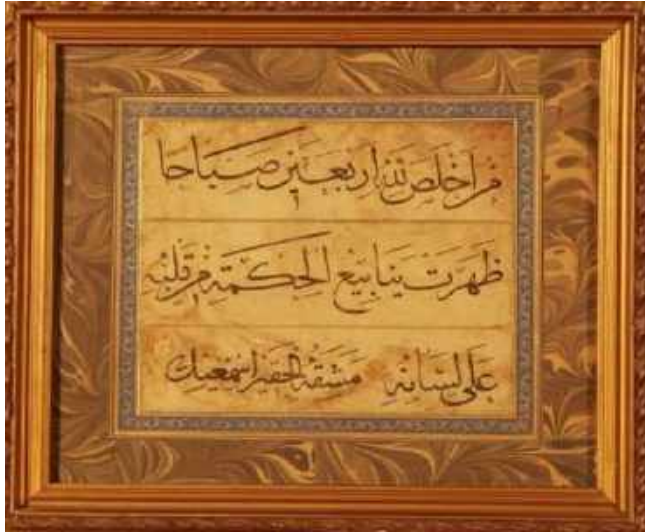 من اخلص لله اربعين صباحا
ظهرت ينابيع الحكمة من قلبه
على لسانه مشقه الحقير اسمعيل